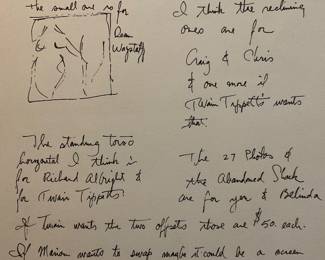 The small one is for
Dean
Wagstaff
I think the reclining
ones are for
Craig & Chris
& one more if
Twain Tippetts wants
that.
The standing torso
horizontal I think is
for Richard Albright &
for Twain Tippetts.
The 27 Photos &
the Abandoned Shack
are for you & Belinda
If Twain wants the two offsets those are $50. each.
If Marion wants to swap maybe it could be a screen